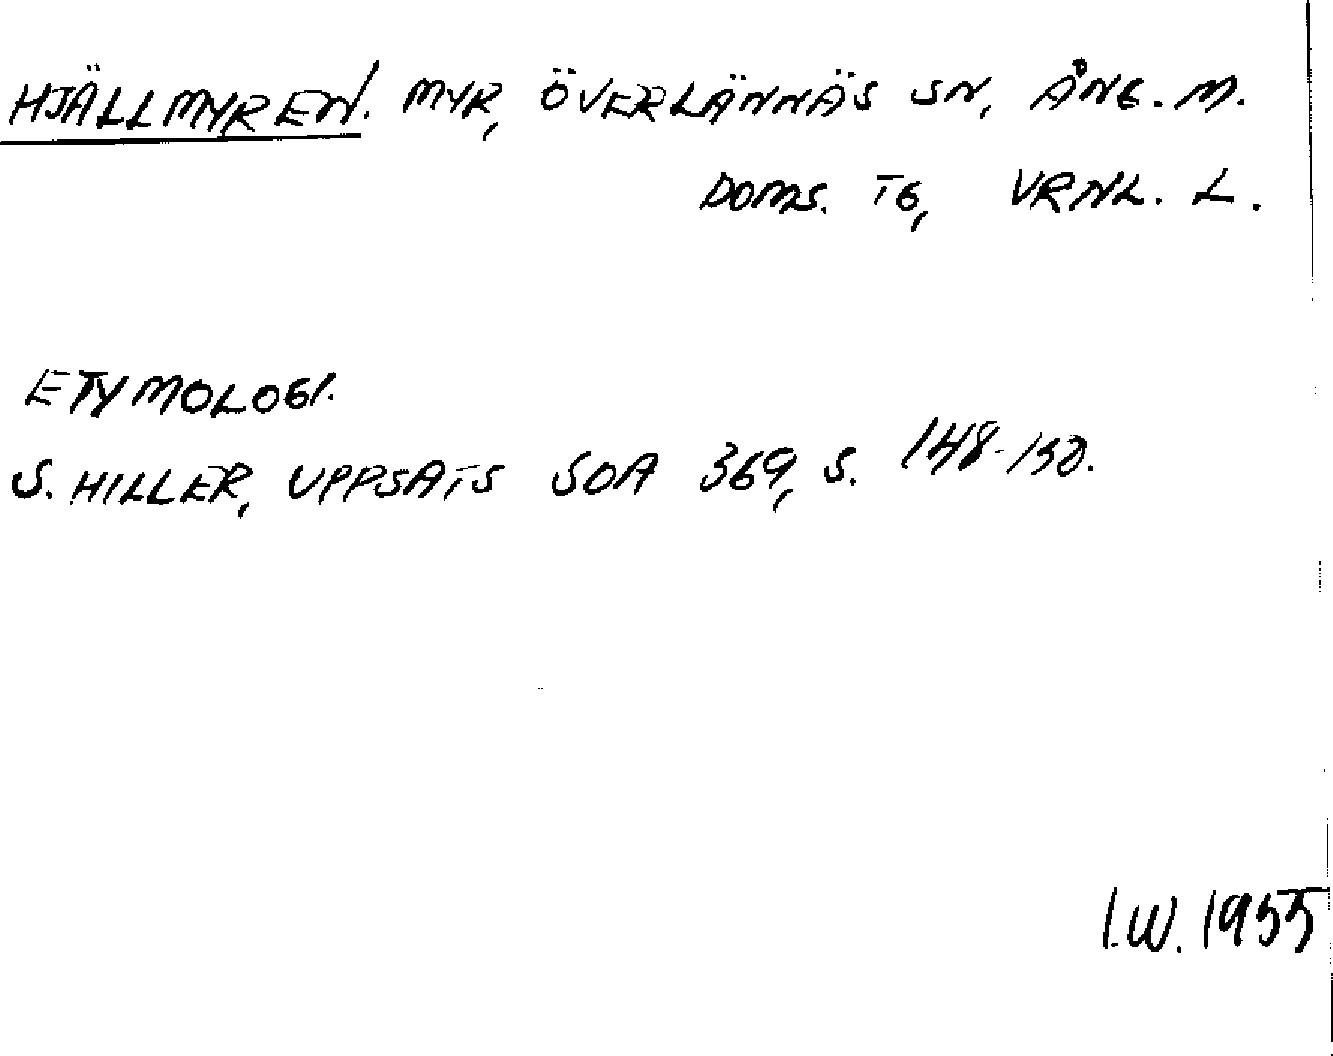 HJÄLLMYREN. MYR, ÖVERLÄNNÄS SN, ÅNG. M.
DOMS. TG, VRNL. L.
ETYMOLOGI.
S. HILLER, UPPSATS SOA 369, S. 148-150.
I.W. 1955